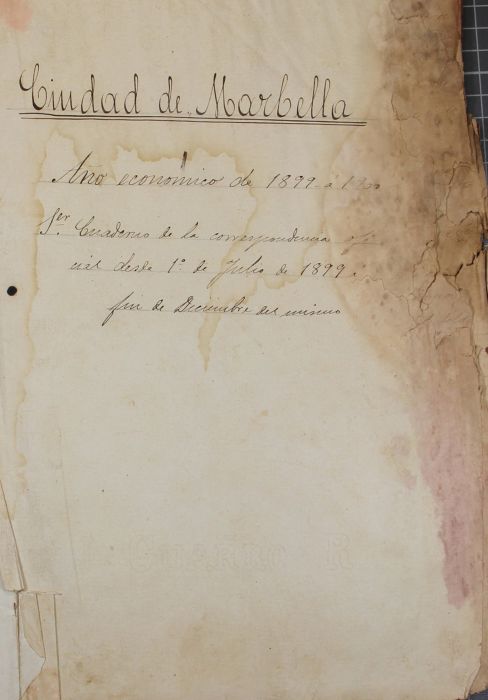 Ciudad de Marbella
Año económico de 1899 a 1900
1er Cuaderno de la correspondencia ofi
cial desde 1º de Julio de 1899 a
fin de Diciembre del mismo